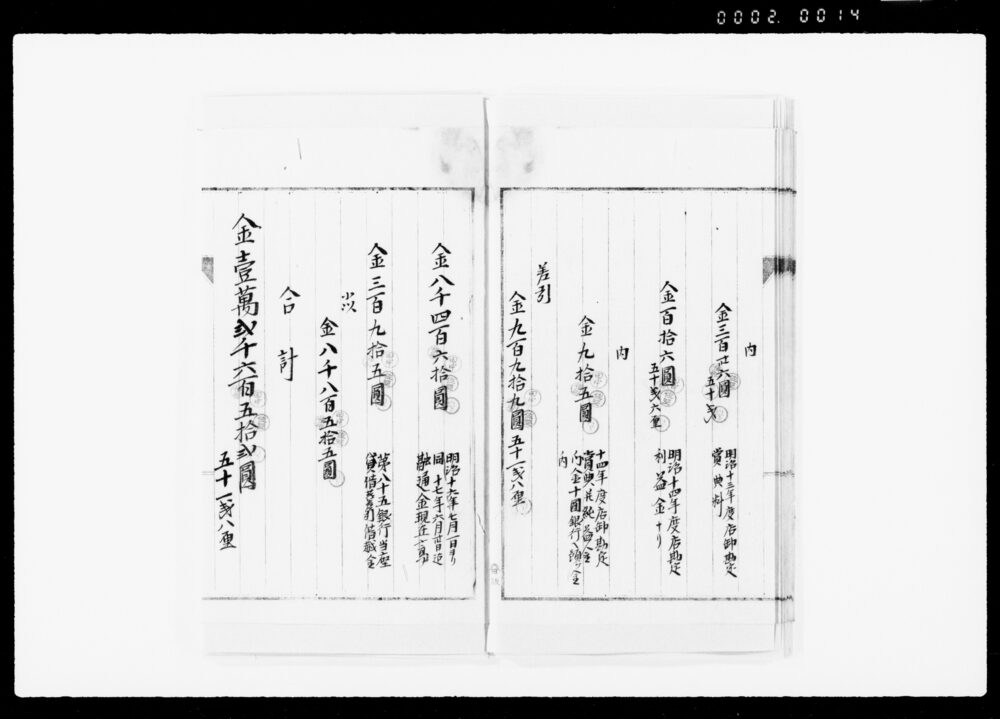 0002.0014
内
金三百廿六圓
五十戔
明治十三年度店卸勘定
賞典料
金百拾六圓
五十戔六厘
明治十四年度店卸勘定
利益金ナリ
内
金九拾五圓
十四年度店卸勘定
賞典
内
差引
金九百九拾九圓五十一戔八厘
金八千四百六拾圓
明治十六年七月一日ヨリ
同十七年六月
融通金現在高
金三百九拾五圓
第八十五銀行当座
貸借
小以
金八千八百五拾五圓
合計
金壹萬弐千六百五拾弐圓
五十一戔八厘